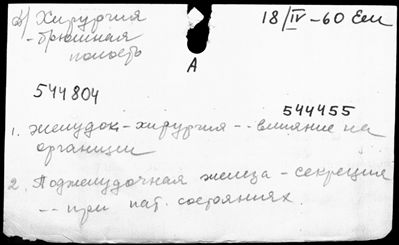 а) Хирургия
- брюшная
полость
18/IV-60 Ели
А
544804
544455
1. Желудок - хирургия -- влияние на
организм
2. Поджелудочная железа - секреция
-- при пат. состояниях.